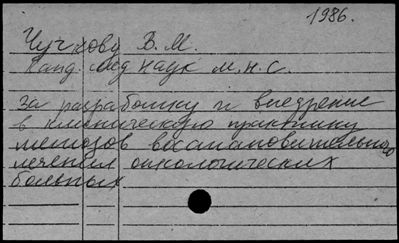 1986.
Чучкову В.М.
Канд. мед наук м.н.с.
за разработку и внедрение
в клиническую практику
методов восстановительного
лечения онкологических
больных